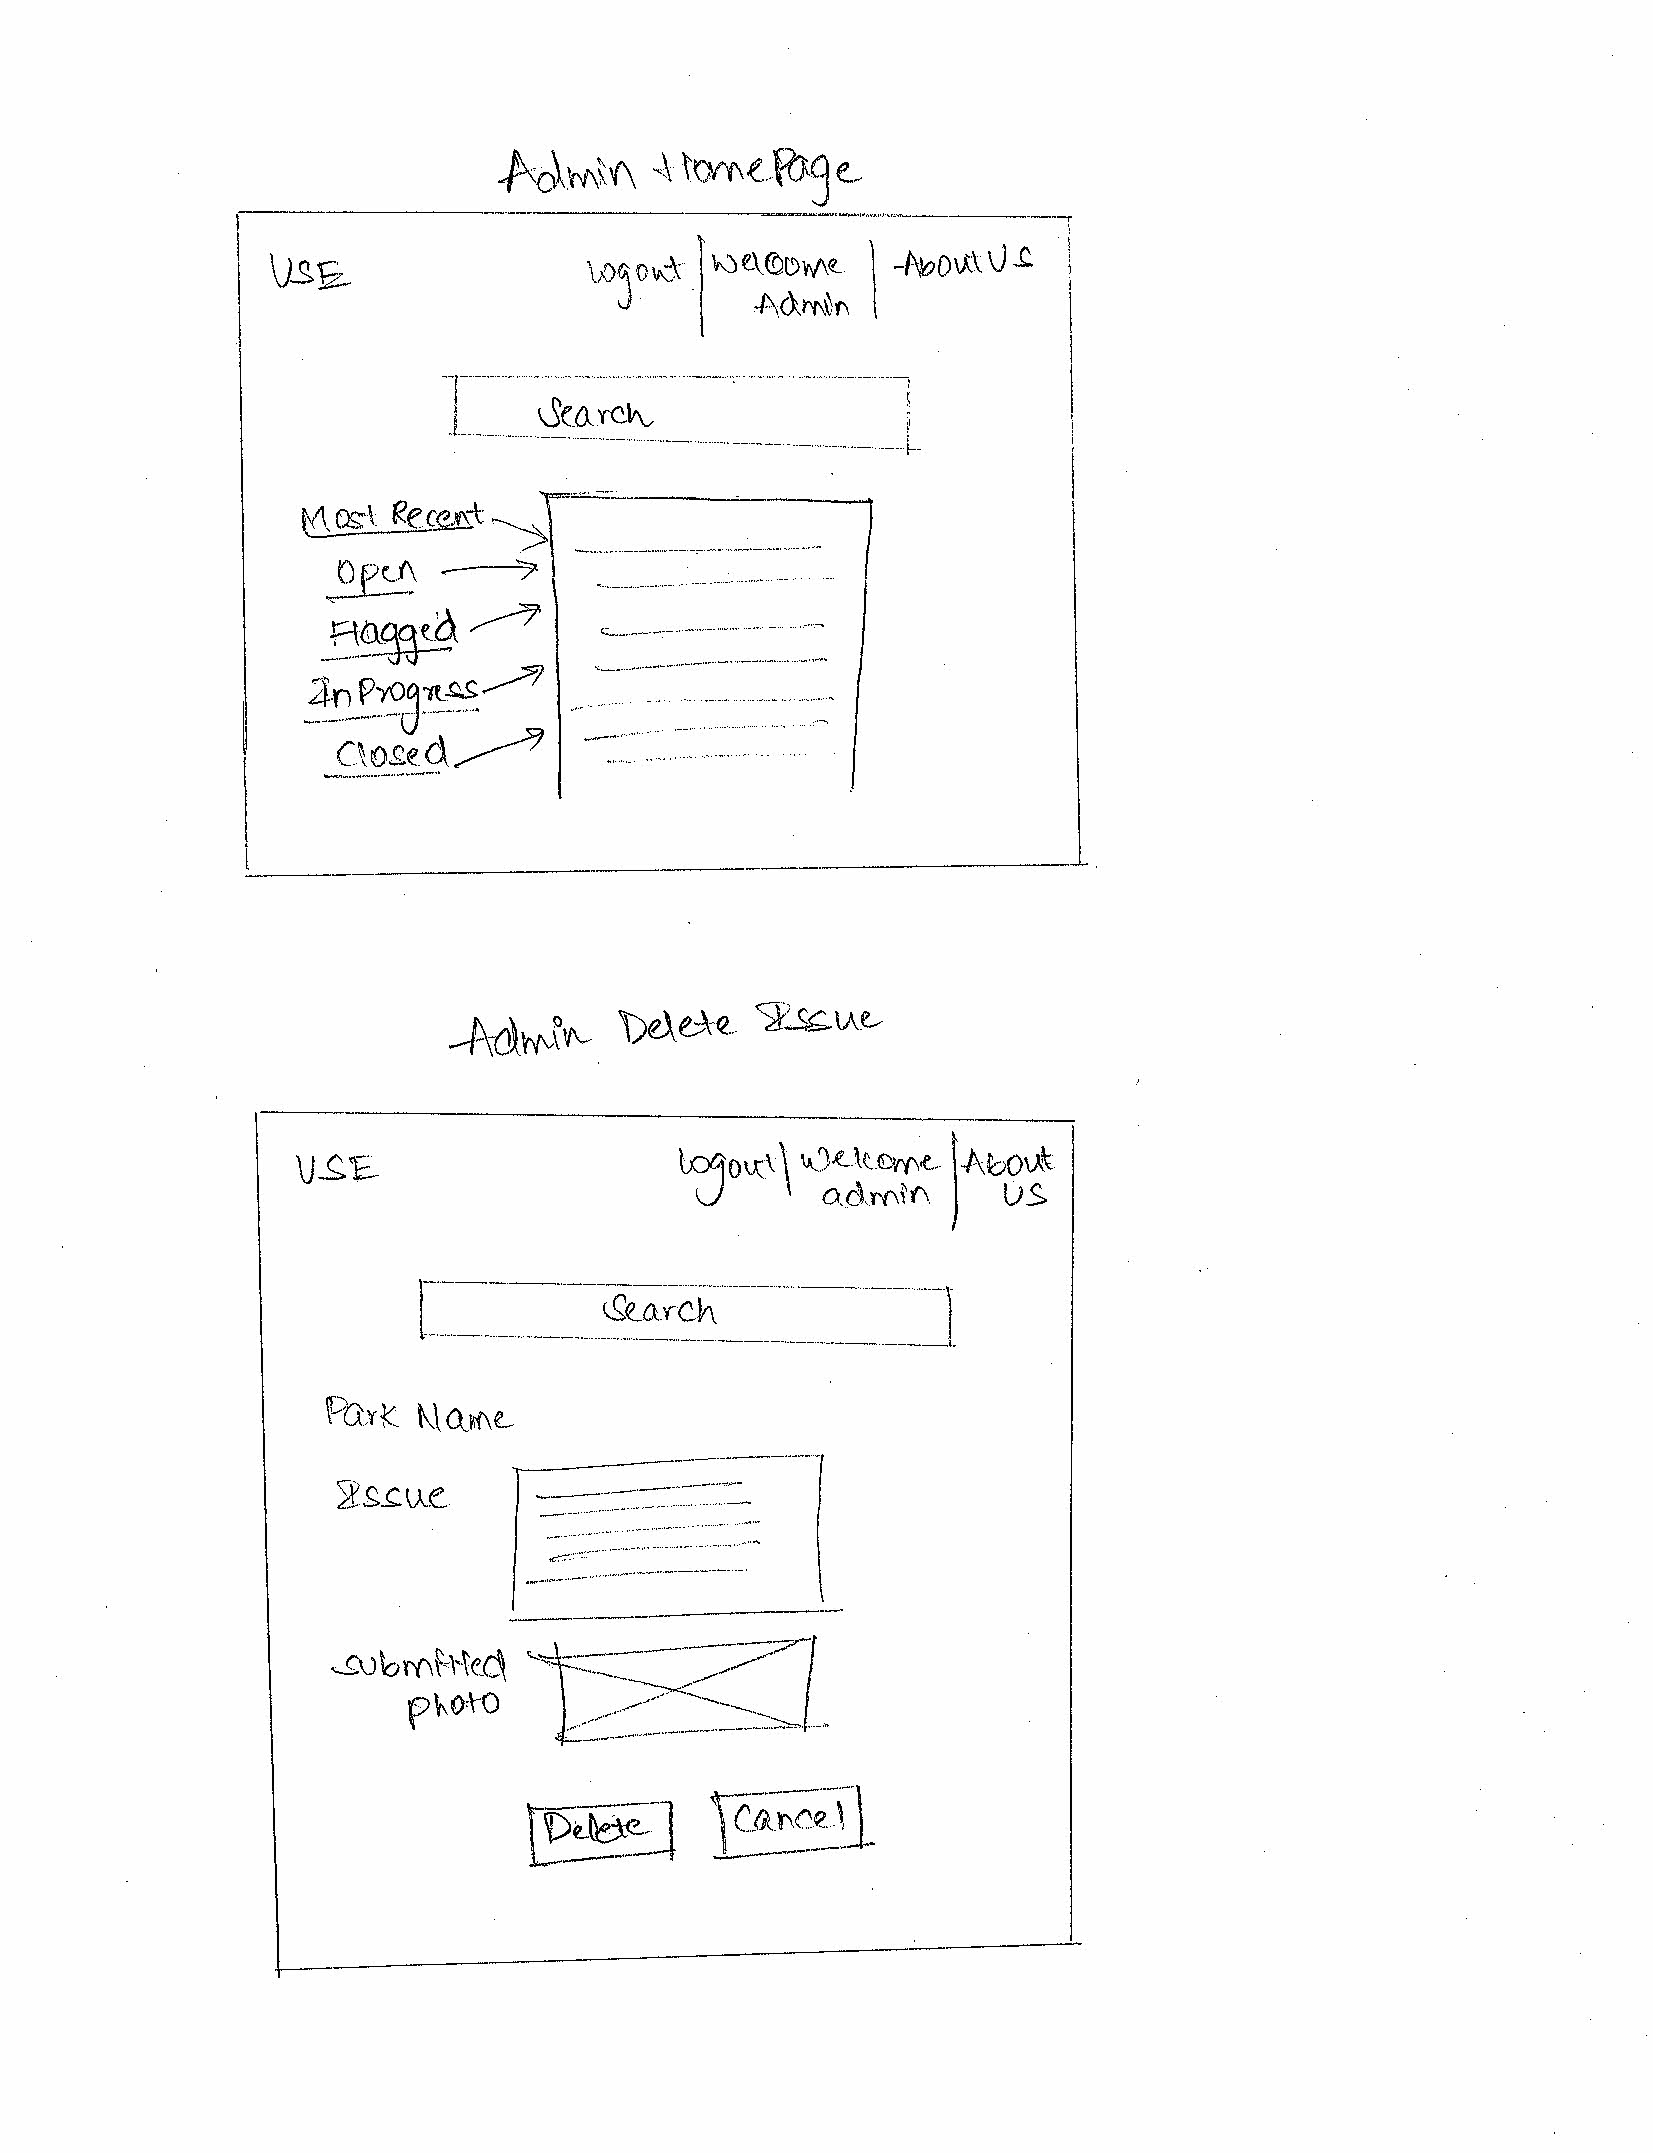 Admin HomePage
USE logout | Welcome Admin | About Us
Search
Most Recent
Open
Flagged
In Progress
Closed
Admin Delete Issue
USE logout | Welcome admin | About US
Search
Park Name
Issue
submitted
photo
Delete Cancel